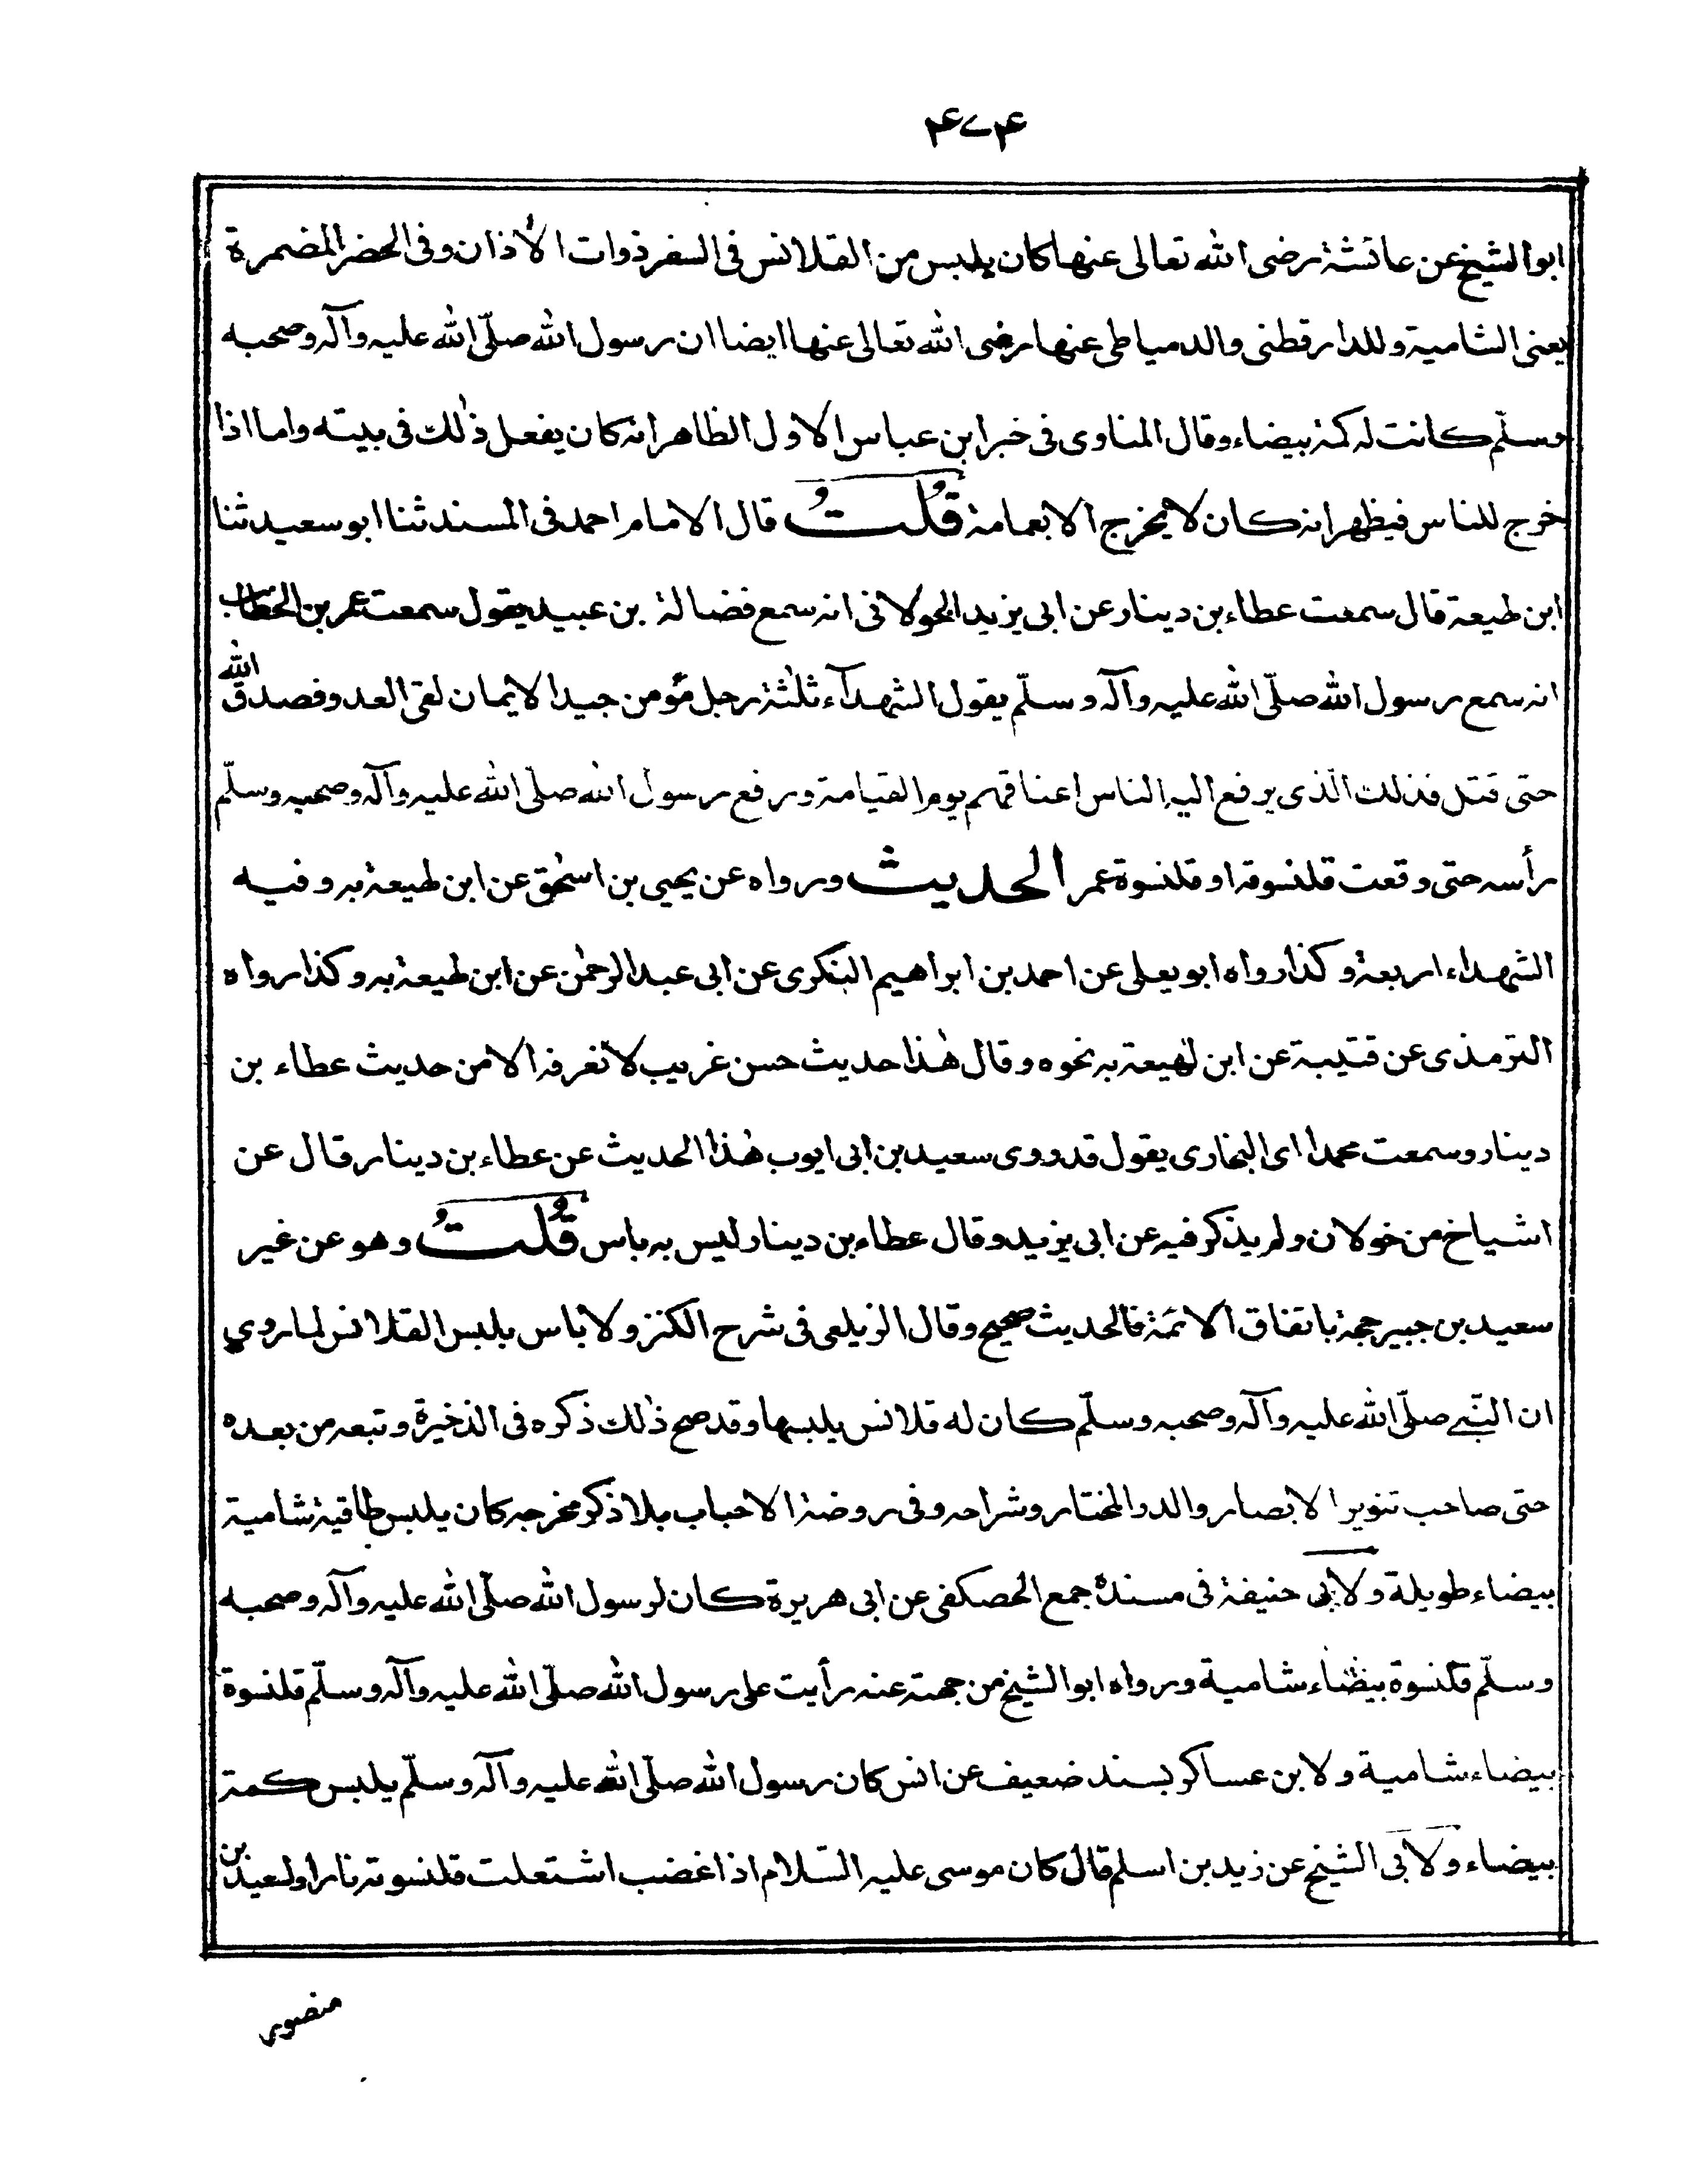 ۴۷۴
ابوالشيخ عن عائشة رضى الله تعالى عنها كان يلبس من القلانس فى السفر ذوات الأذان وفى الحضر المضمرة
يعنى الشامية وللدارقطنى والدمياطى عنها رضى الله تعالى عنها ايضا ان رسول الله صلّى الله عليه وآله وصحبه
وسلّم كانت له كمة بيضاء وقال المناوى فى خبر ابن عباس الاول الظاهر انه كان يفعل ذٰلك فى بيته واما اذا
خرج للناس فيظهر انه كان لا يخرج الا بعمامة قُلتُ قال الامام احمد فى المسند ثنا ابو سعيد ثنا
ابن لهيعة قال سمعت عطاء بن دينار عن ابى يزيد الخولانى انه سمع فضالة بن عبيد يقول سمعت عمر بن الخطاب
انه سمع رسول الله صلّى الله عليه وآله وسلّم يقول الشهدآء ثلٰثة رجل مؤمن جيد الايمان لقى العدو فصدق الله
حتى قتل فذلك الّذى يرفع اليه الناس اعناقهم يوم القيامة ورفع رسول الله صلّى الله عليه وآله وصحبه وسلّم
رأسه حتى وقعت قلنسوته او قلنسوة عمر الحديث ورواه عن يحيى بن اسحٰق عن ابن لهيعة به وفيه
الشهداء اربعة وكذا رواه ابو يعلى عن احمد بن ابراهيم البنكرى عن ابى عبد الرحمٰن عن ابن لهيعة به وكذا رواه
الترمذى عن قتيبة عن ابن لهيعة به نحوه وقال هٰذا حديث حسن غريب لا نعرفه الا من حديث عطاء بن
دينار وسمعت محمدا اى البخارى يقول قد روى سعيد بن ابى ايوب هٰذا الحديث عن عطاء بن دينار قال عن
اشياخ من خولان ولم يذكر فيه عن ابى يزيد وقال عطاء بن دينار ليس به باس قُلتُ وهو عن غير
سعيد بن جبير حجة باتفاق الائمة فالحديث صحيح وقال الزيلعى فى شرح الكنز ولا باس بلبس القلانس لما روي
ان النّبى صلّى الله عليه وآله وصحبه وسلّم كان له قلانس يلبسها وقد صح ذٰلك ذكره فى الذخيرة وتبعه من بعده
حتى صاحب تنوير الابصار والدر المختار وشراحه وفى روضة الاحباب بلا ذكر مخرجه كان يلبس طاقية شامية
بيضاء طويلة ولابى حنيفة فى مسنده جمع الحصكفى عن ابى هريرة كان لرسول الله صلّى الله عليه وآله وصحبه
وسلّم قلنسوة بيضاء شامية ورواه ابو الشيخ من جهته عنه رأيت على رسول الله صلّى الله عليه وآله وسلّم قلنسوة
بيضاء شامية ولابن عساكر بسند ضعيف عن انس كان رسول الله صلّى الله عليه وآله وسلّم يلبس كمة
بيضاء ولابى الشيخ عن زيد بن اسلم قال كان موسى عليه السّلام اذا غضب اشتعلت قلنسوته نارا ولسعيد بن
منصور